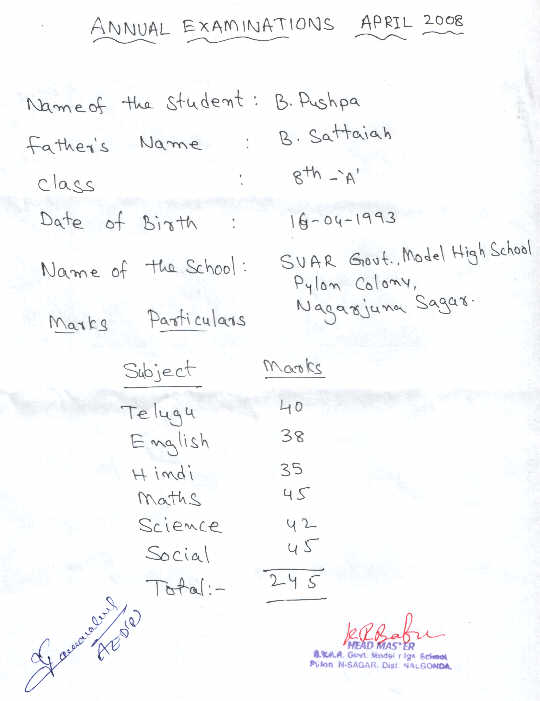 ANNUAL EXAMINATIONS APRIL 2008
Name of the Student : B. Pushpa
Father's Name : B. Sattaiah
Class : 8th - 'A'
Date of Birth : 16-04-1993
Name of the School : SVAR Govt., Model High School
Pylon Colony,
Nagarjuna Sagar.
Marks Particulars
Subject Marks
Telugu 40
English 38
Hindi 35
Maths 45
Science 42
Social 45
Total:- 245
K.R.Babu
HEAD MASTER
Govt. Model High School
Pylon N-SAGAR, Dist. NALGONDA.